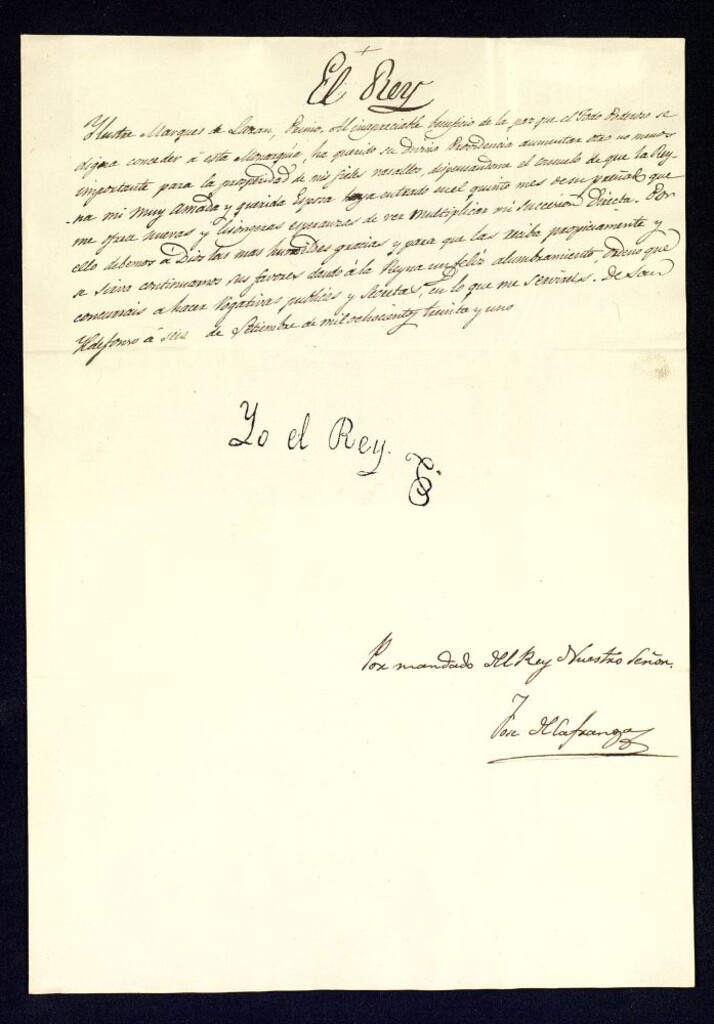 El Rey
Ylustre Marques de Lazan, Primo. Al inapreciable beneficio de la paz que el Todo Poderoso se
digna conceder á esta Monarquia, ha querido su Divina Providencia aumentar otro no menos
importante para la prosperidad de mis fieles vasallos, dispensandome el consuelo de que la Rey-
-na mi muy Amada y querida Esposa haya entrado en el quinto mes de su preñado que
me ofrece nuevas y lisongeras esperanzas de ver multiplicar mi succesion Directa. Por
ello debemos á Dios las mas humildes gracias y para que las reciba propiciamente y
se sirva continuarnos sus favores dando á la Reyna un feliz alumbramiento, ordeno que
concurrais a hacer Rogativas publicas y secretas, en lo que me servireis. De San
Yldefonso á seis de Setiembre de mil ochocientos treinta y uno
Yo el Rey.
Por mandado del Rey Nuestro Señor.
Jose de Cafranga